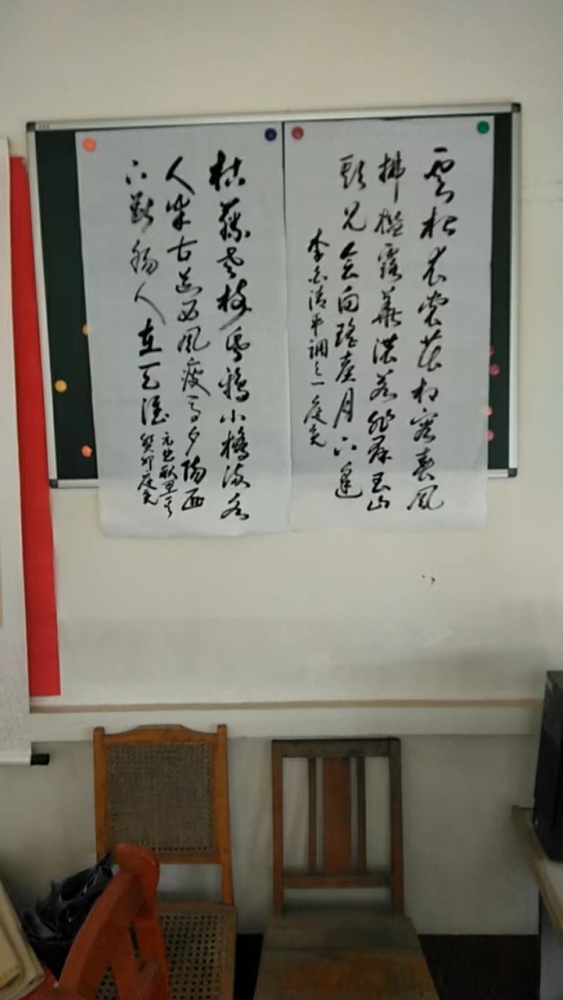 雲想衣裳花想容春風
拂檻露華濃若非群玉山
頭見會向瑤臺月下逢
李白清平調之一
枯藤老樹昏鴉小橋流水
人家古道西風瘦馬夕陽西
下斷腸人在天涯
元曲秋思
癸卯